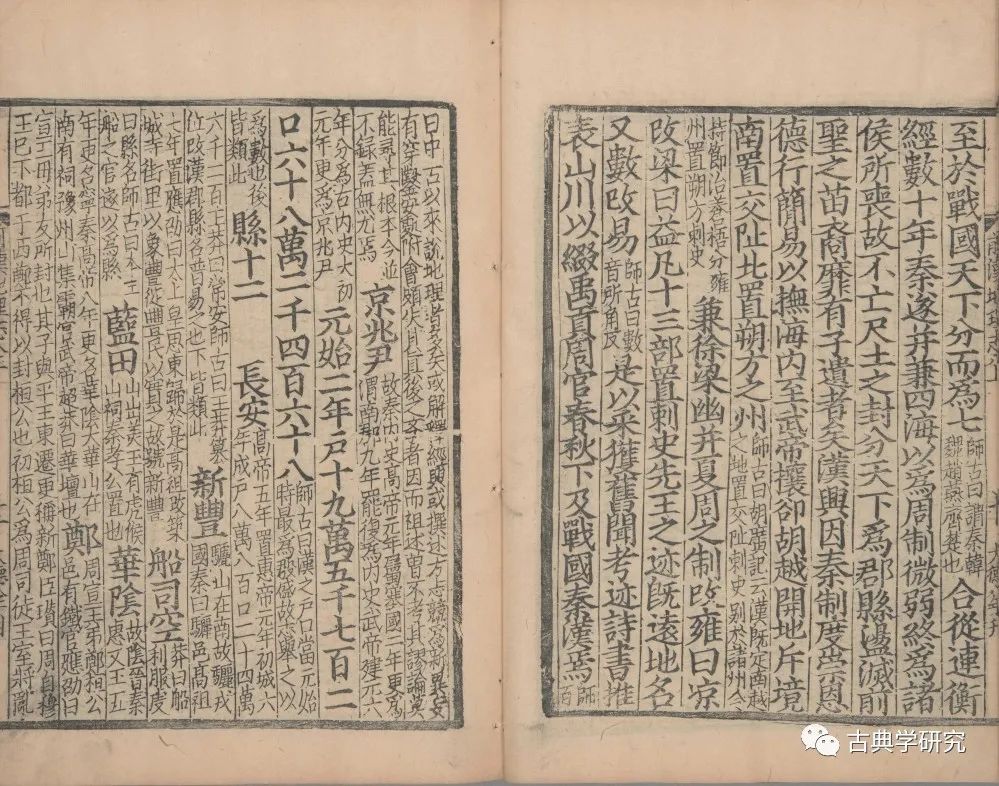 至於戰國天下分而爲七師古曰謂秦韓魏趙燕齊楚也合從連衡
經數十年秦遂并兼四海以爲周制微弱終爲諸
侯所喪故不立尺土之封分天下爲郡縣盪滅前
聖之苗裔靡有孑遺者矣漢興因秦制度崇恩
德行簡易以撫海內至武帝攘卻胡越開地斥境
南置交阯北置朔方之州師古曰胡廣記云漢旣定南越之地置交阯刺史別於諸州令
持節治蒼梧分雍州置朔方刺史兼徐梁幽并夏周之制改雍曰涼
改梁曰益凡十三部置刺史先王之迹旣遠地名
又數改易師古曰數音所角反是以采獲舊聞考迹詩書推
表山川以綴禹貢周官春秋下及戰國秦漢焉師古
曰中古以來說地理者多矣或解釋經典或撰述方志競爲新異妄有穿鑿安處附會頗失其眞後之學者因而祖述曾不考其謬論莫
能尋其根本今並不錄蓋無尤焉京兆尹故秦內史高帝元年屬塞國二年更爲渭南郡九年罷復爲內史武帝建元六
年分爲右內史太初元年更爲京兆尹元始二年戶十九萬五千七百二
口六十八萬二千四百六十八師古曰漢之戶口當元始時最爲殷盛故志舉之以
爲數也後皆類此縣十二長安高帝五年置惠帝元年初城六年成戶八萬八百口二十四萬
六千二百王莽曰常安師古曰王莽篡位改漢郡縣名普易之也下皆類此新豐驪山在南故驪戎國秦曰驪邑高祖
七年置應劭曰太上皇思東歸於是高祖改築城寺街里以象豐徙豐民以實之故號新豐船司空莽曰船利服虔
曰縣名師古曰本主船之官遂以爲縣藍田山出美玉有虎候山祠秦孝公置也華陰故陰晉秦惠文王五
年更名寧秦高帝八年更名華陰太華山在南有祠豫州山集靈宮武帝起莽曰華壇也鄭周宣王弟鄭桓公邑有鐵官應劭曰
宣王母弟友所封也其子與平王東遷更稱新鄭臣瓚曰周自穆王已下都于西鄭不得以封桓公也初桓公爲周司徒王室將亂
古典学研究